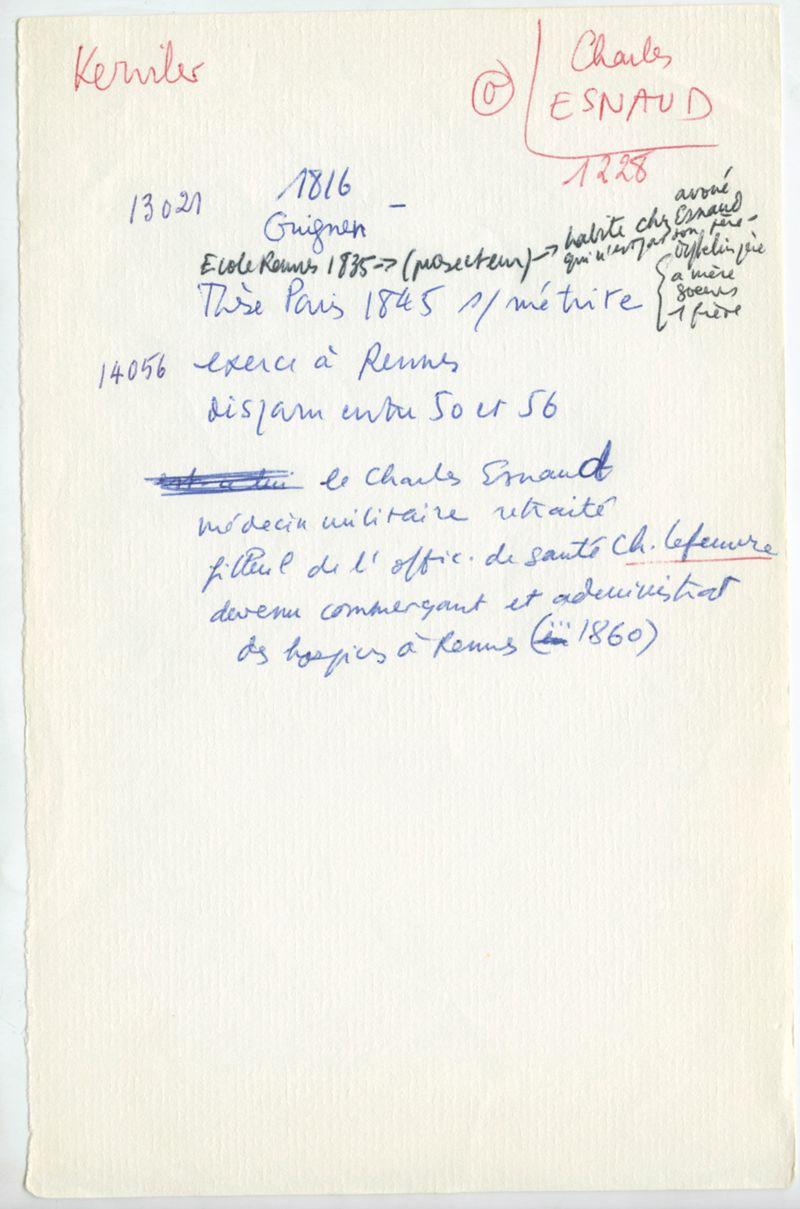 Kerviler
Charles
ⓞ ESNAUD
1228
13021 1816 -
Guignen
Ecole Rennes 1835 -> (prosecteur) -> habite chez avoué Esnaud
qui n'est pas son père -
orphelin père
a mère
soeurs
1 frère
Thèse Paris 1845 s/ métrite
14056 exerce à Rennes
disparu entre 50 et 56
le Charles Esnaud
médecin militaire retraité
filleul de l'offic. de santé Ch. Lefeuvre
devenu commerçant et administrat
des hospices à Rennes (in 1860)